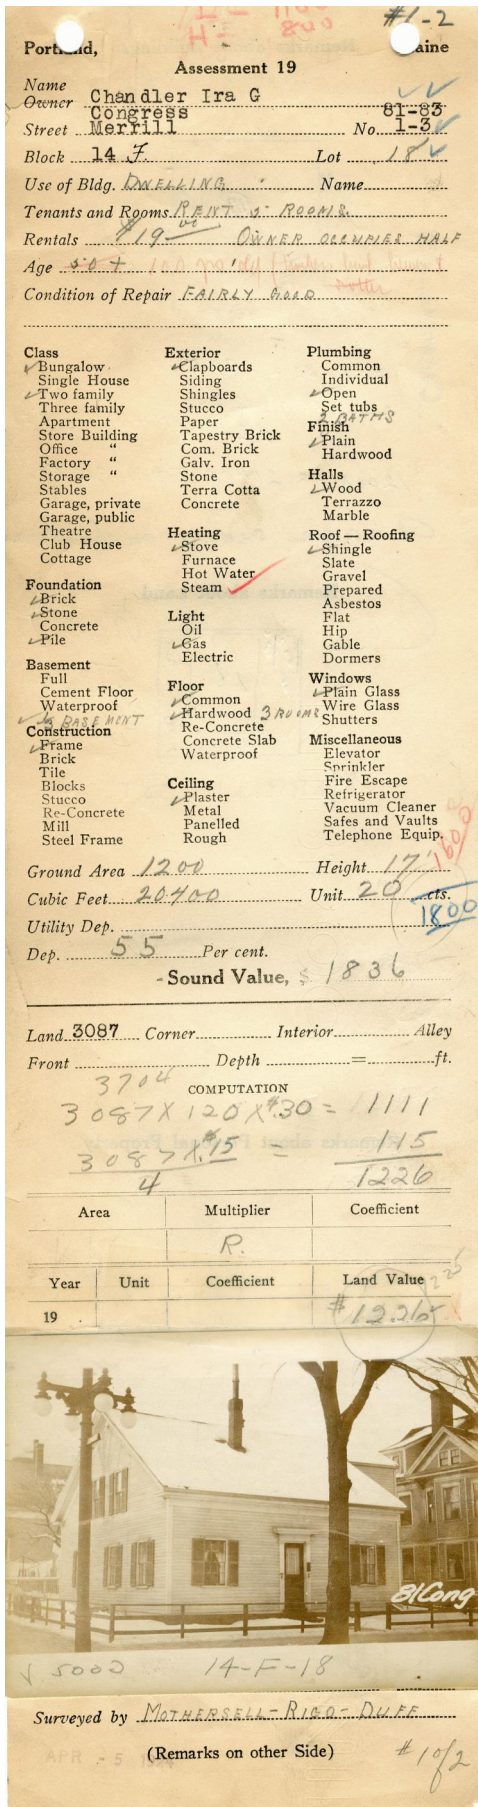 L = 1100
H = 800
#1-2
Portland, Maine
Assessment 19
Name
Owner Chandler Ira G
Congress 81-83
Street Merrill No. 1-3
Block 14 F. Lot 18
Use of Bldg. DWELLING Name
Tenants and Rooms RENT 5 ROOMS
Rentals $19 00 OWNER OCCUPIES HALF
Age 50+ 100 yrs old
Condition of Repair FAIRLY GOOD
Class
Bungalow
Single House
Two family
Three family
Apartment
Store Building
Office "
Factory "
Storage "
Stables
Garage, private
Garage, public
Theatre
Club House
Cottage
Foundation
Brick
Stone
Concrete
Pile
Basement
Full
Cement Floor
Waterproof
⅓ BASEMENT
Construction
Frame
Brick
Tile
Blocks
Stucco
Re-Concrete
Mill
Steel Frame
Exterior
Clapboards
Siding
Shingles
Stucco
Paper
Tapestry Brick
Com. Brick
Galv. Iron
Stone
Terra Cotta
Concrete
Heating
Stove
Furnace
Hot Water
Steam
Light
Oil
Gas
Electric
Floor
Common
Hardwood 3 ROOMS
Re-Concrete
Concrete Slab
Waterproof
Ceiling
Plaster
Metal
Panelled
Rough
Plumbing
Common
Individual
Open
Set tubs
2 BATHS
Finish
Plain
Hardwood
Halls
Wood
Terrazzo
Marble
Roof — Roofing
Shingle
Slate
Gravel
Prepared
Asbestos
Flat
Hip
Gable
Dormers
Windows
Plain Glass
Wire Glass
Shutters
Miscellaneous
Elevator
Sprinkler
Fire Escape
Refrigerator
Vacuum Cleaner
Safes and Vaults
Telephone Equip.
1600
Ground Area 1200 Height 17'
Cubic Feet 20400 Unit 20 cts.
1800
Utility Dep.
Dep. 55 Per cent.
- Sound Value, $ 1836
Land 3087 Corner Interior Alley
Front Depth = ft.
3704
COMPUTATION
3087 X 120 X $.30 = 1111
3087 X $.15 = 115
4 1226
Area Multiplier Coefficient
R.
Year Unit Coefficient Land Value
1225
19 $1226
81 Cong
V 5000 14-F-18
Surveyed by MOTHERSELL-RIGO-DUFF
(Remarks on other Side)
APR - 5
#1 of 2